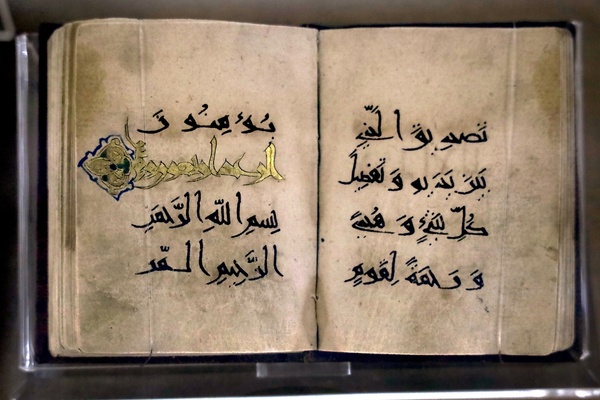 تَصْدِيقَ الَّذِي
بَيْنَ يَدَيْهِ وَتَفْصِيلَ
كُلِّ شَيْءٍ وَهُدًى
وَرَحْمَةً لِقَوْمٍ
يُؤْمِنُونَ
بِسْمِ اللَّهِ الرَّحْمَنِ
الرَّحِيمِ المر